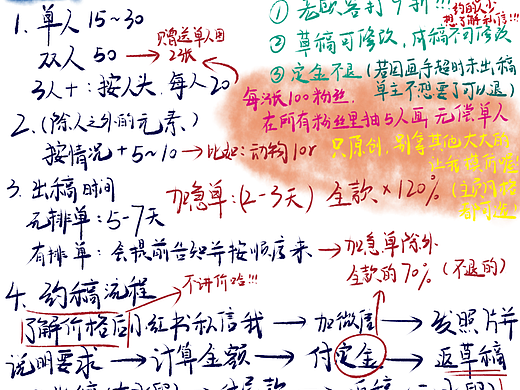 1. 单人 15~30
双人 50 → 只赠送单人图2张
3人+: 按人头, 每人20
2. (除人之外的元素)
按情况 +5~10 → 比如: 动物10r
3. 出稿时间
无排单: 5-7天
有排单: 会提前告知并按顺序来 → 加急单除外
加急单: (2-3天) 全款 ×120%
全款的70% (不退的)
4. 约稿流程
不讲价哈!!!
了解价格后小红书私信我 → 加微信 → 发照片并
说明要求 → 计算金额 → 付定金 → 返草稿
① 老顾客打9折!!!
约的人少
想了解私信!!!
② 草稿可修改, 成稿不可修改
③ 定金不退 (若因画手超时未出稿
单主不想要了可以退)
每涨100粉丝,
在所有粉丝里抽与人画 无偿单人
只原创, 别拿其他大大的